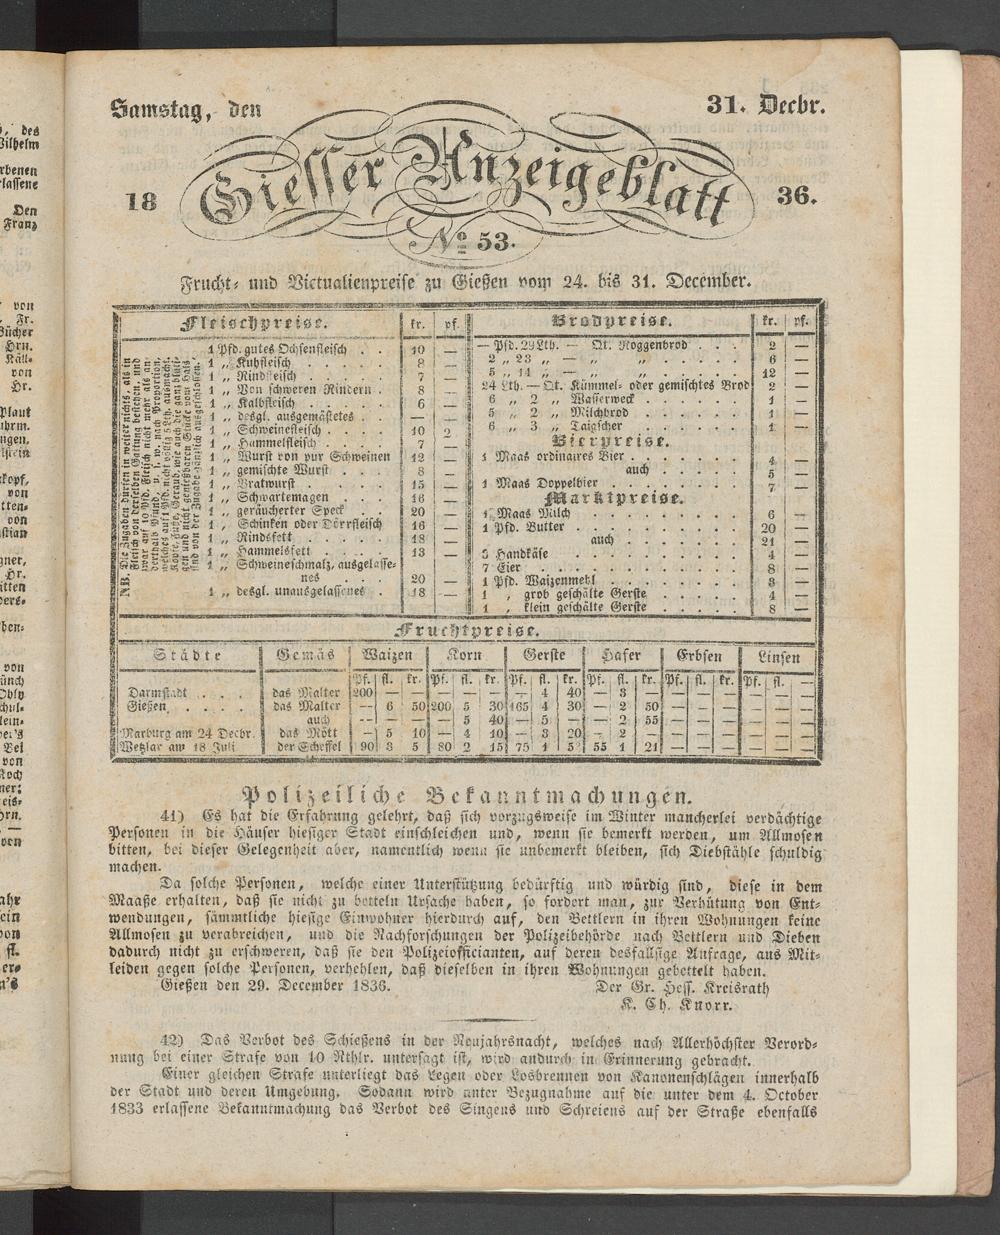 Samstag, den 31. Decbr.
18 Giesser Anzeigeblatt 36.
No 53.
Frucht- und Victualienpreise zu Gießen vom 24. bis 31. December.
Fleischpreise. kr. pf.
1 Pfd. gutes Ochsenfleisch . . 10 —
1 „ Kuhfleisch . . . . . 8 —
1 „ Rindfleisch . . . . 7 —
1 „ Von schweren Rindern . 8 —
1 „ Kalbfleisch . . . . . 6 —
1 „ desgl. ausgemästetes . . — —
1 „ Schweinefleisch . . . . 10 2
1 „ Hammelfleisch . . . . 7 —
1 „ Wurst von pur Schweinen 12 —
1 „ gemischte Wurst . . . 8 —
1 „ Bratwurst . . . . . 15 —
1 „ Schwartemagen . . . 16 —
1 „ geräucherter Speck . . 20 —
1 „ Schinken oder Dörrfleisch 16 —
1 „ Rindsfett . . . . . 18 —
1 „ Hammelsfett . . . . 13 —
1 „ Schweineschmalz, ausgelasse-
nes . . . . . 20 —
1 „ desgl. unausgelassenes . 18 —
NB. Die Zugaben dürfen in weiter nichts, als in
Fleisch von derselben Gattung bestehen, und
zwar auf 10 Pfd. Fleisch nicht mehr als an-
derthalb Pfund, u. s. w. nach Proportion,
welches auf 1 Pfd. nicht völlig 5 Lth. ausmacht.
Köpfe, Füße, Geraub, wie auch die ganz bluti-
gen und nicht genießbaren Stücke vom Hals
sind von der Zugabe gänzlich ausgeschlossen.
Brodpreise. kr. pf.
— Pfd. 29 Lth. — Qt. Roggenbrod . . . 2 —
2 „ 23 „ — „ „ . . . . 6 —
5 „ 14 „ — „ „ . . . . 12 —
24 Lth. — Qt. Kümmel- oder gemischtes Brod 2 —
6 „ 2 „ Wasserweck . . . . . 1 —
5 „ 2 „ Milchbrod . . . . . 1 —
6 „ 3 „ Taigscher . . . . . 1 —
Bierpreise.
1 Maas ordinaires Bier . . . . . 4 —
auch . . . . . 5 —
1 Maas Doppelbier . . . . . 7 —
Marktpreise.
1 Maas Milch . . . . . 6 —
1 Pfd. Butter . . . . . 20 —
auch . . . . . 21 —
5 Handkäse . . . . . 4 —
7 Eier . . . . . 8 —
1 Pfd. Waizenmehl . . . . . 3 —
1 „ grob geschälte Gerste . . . . . 4 —
1 „ klein geschälte Gerste . . . . . 8 —
Fruchtpreise.
Städte Gemäs Waizen Korn Gerste Hafer Erbsen Linsen
Pf. fl. kr. Pf. fl. kr. Pf. fl. kr. Pf. fl. kr. Pf. fl. kr. Pf. fl. —
Darmstadt . . . das Malter 200 — — — — — — 4 40 — 3 — — — — — — —
Gießen . . . . das Malter — 6 50 200 5 30 165 4 30 — 2 50 — — — — — —
auch — — — 5 40 — 5 — — 2 55 — — — — — —
Marburg am 24 Decbr. das Mött — 5 10 — 4 10 — 3 20 — 2 — — — — — — —
Wetzlar am 18 Juli der Scheffel 90 3 5 80 2 15 75 1 5? 55 1 21 — — — — — —
Polizeiliche Bekanntmachungen.
41) Es hat die Erfahrung gelehrt, daß sich vorzugsweise im Winter mancherlei verdächtige
Personen in die Häuser hiesiger Stadt einschleichen und, wenn sie bemerkt werden, um Allmosen
bitten, bei dieser Gelegenheit aber, namentlich wenn sie unbemerkt bleiben, sich Diebstähle schuldig
machen.
Da solche Personen, welche einer Unterstützung bedürftig und würdig sind, diese in dem
Maaße erhalten, daß sie nicht zu betteln Ursache haben, so fordert man, zur Verhütung von Ent-
wendungen, sämmtliche hiesige Einwohner hierdurch auf, den Bettlern in ihren Wohnungen keine
Allmosen zu verabreichen, und die Nachforschungen der Polizeibehörde nach Bettlern und Dieben
dadurch nicht zu erschweren, daß sie den Polizeiofficianten, auf deren desfallsige Anfrage, aus Mit-
leiden gegen solche Personen, verhehlen, daß dieselben in ihren Wohnungen gebettelt haben.
Gießen den 29. December 1836. Der Gr. Hess. Kreisrath
K. Ch. Knorr.
42) Das Verbot des Schießens in der Neujahrsnacht, welches nach Allerhöchster Verord-
nung bei einer Strafe von 10 Rthlr. untersagt ist, wird andurch in Erinnerung gebracht.
Einer gleichen Strafe unterliegt das Legen oder Losbrennen von Kanonenschlägen innerhalb
der Stadt und deren Umgebung. Sodann wird unter Bezugnahme auf die unter dem 4. October
1833 erlassene Bekanntmachung das Verbot des Singens und Schreiens auf der Straße ebenfalls